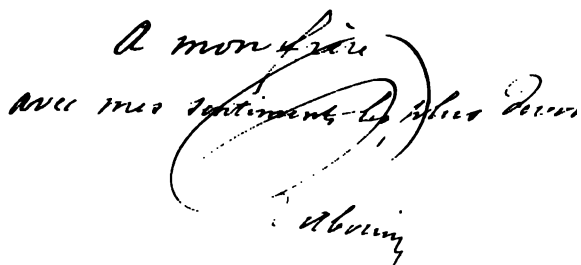 A mon frère
avec mes sentiments les plus